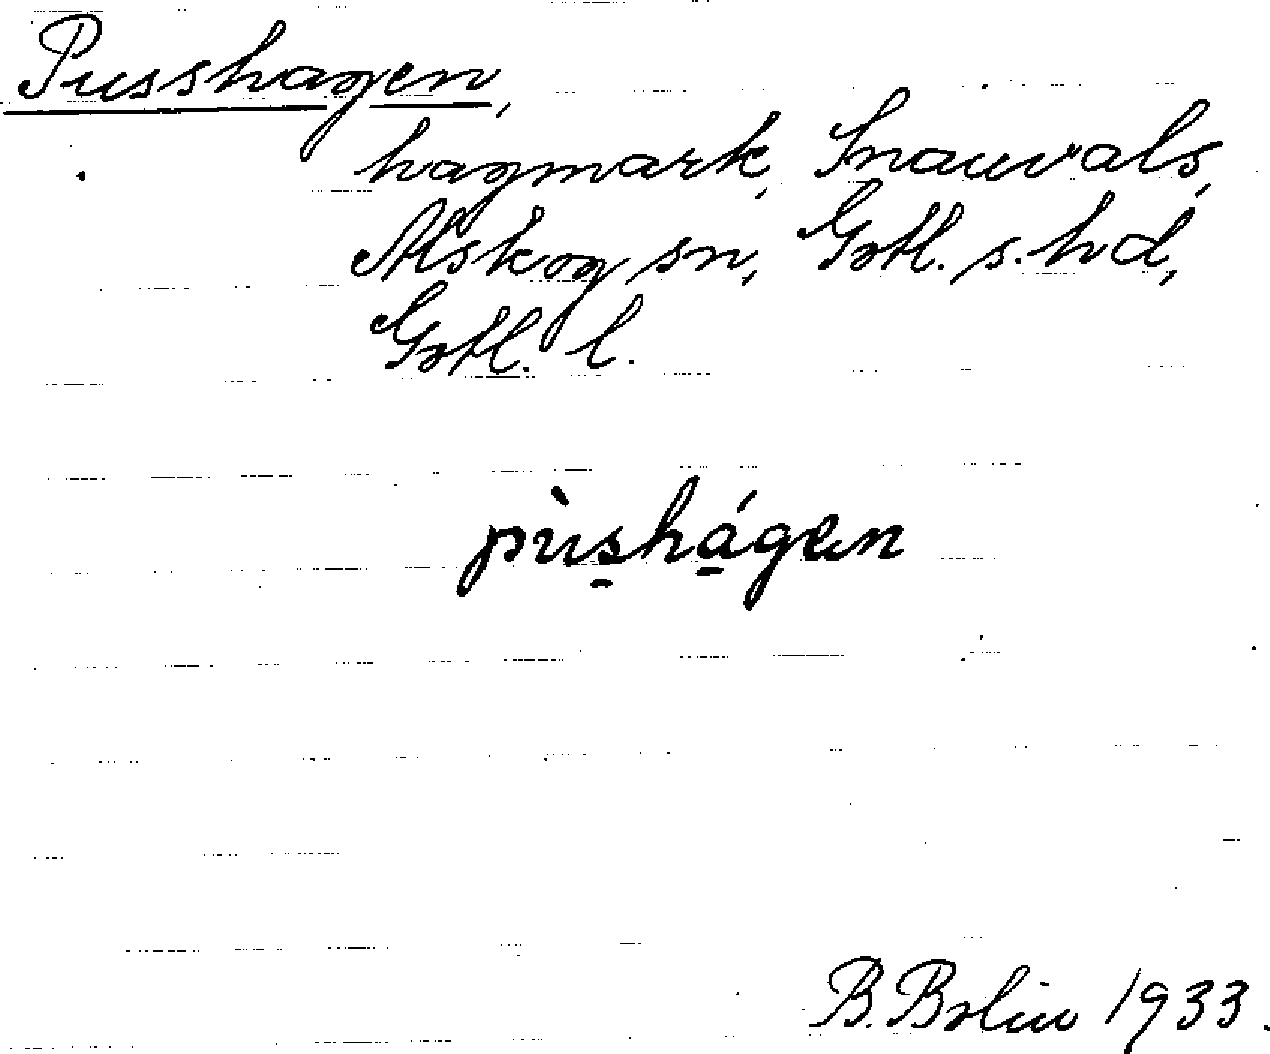 Pusshagen,
hagmark, Snauvals,
Alskog sn, Gotl. s. hd,
Gotl. l.
pùs̱há̱gen
B. Bolin 1933.